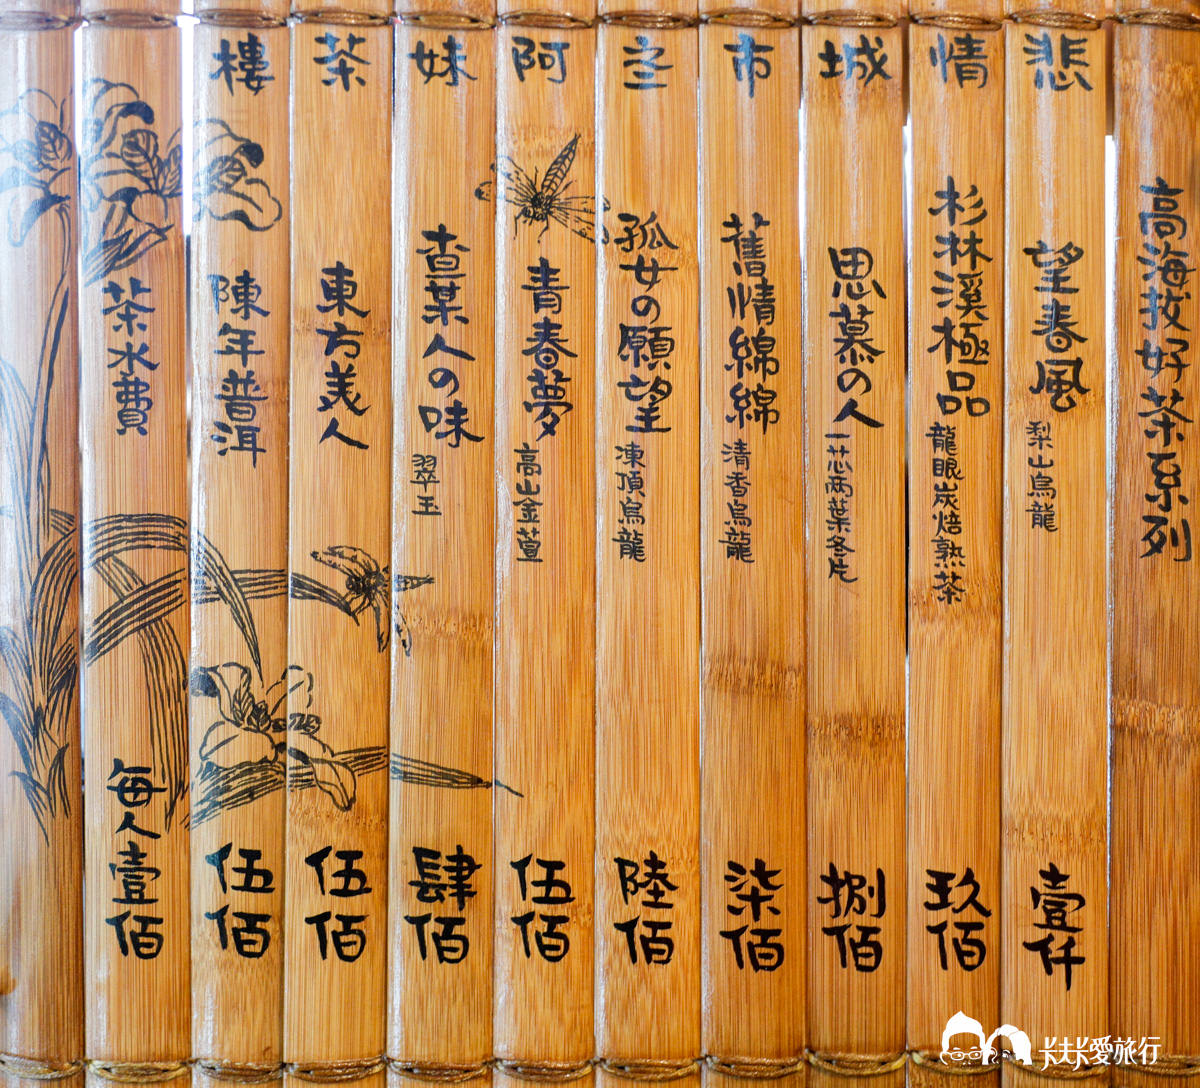 悲情城市之阿妹茶樓
高海拔好茶系列
望春風 梨山烏龍 壹仟
杉林溪極品 龍眼炭焙熟茶 玖佰
思慕の人 一芯兩葉冬片 捌佰
舊情綿綿 清香烏龍 柒佰
孤女の願望 凍頂烏龍 陸佰
青春夢 高山金萱 伍佰
查某人の味 翠玉 肆佰
東方美人 伍佰
陳年普洱 伍佰
茶水費 每人壹佰
卡夫卡愛旅行